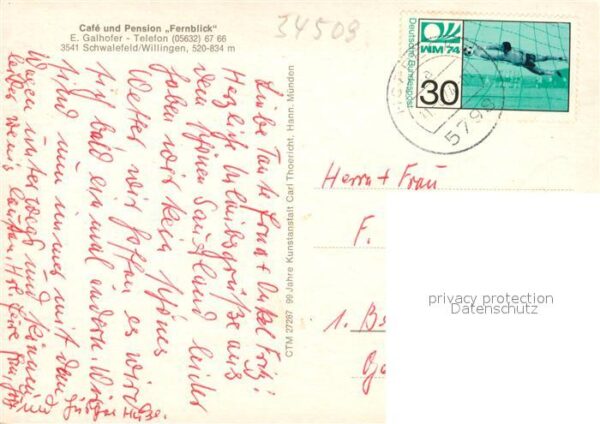 Café und Pension „Fernblick"
E. Galhofer - Telefon (05632) 67 66
3541 Schwalefeld/Willingen, 520-834 m
34509
WM 74
Deutsche Bundespost
30
5790
Liebe Tante Erna + Onkel Fritz!
Herzliche Urlaubsgrüße aus
dem schönen Sauerland leider
haben wir kein schönes
Wetter wir hoffen es wird
sich bald einmal ändern. Wir
sind nun immer mit dem
Wagen unterwegs und können
leider wenig laufen.
CTM 27287 99 Jahre Kunstanstalt Carl Thoericht, Hann. Münden
Herrn + Frau
F.
1. Be
privacy protection
Datenschutz